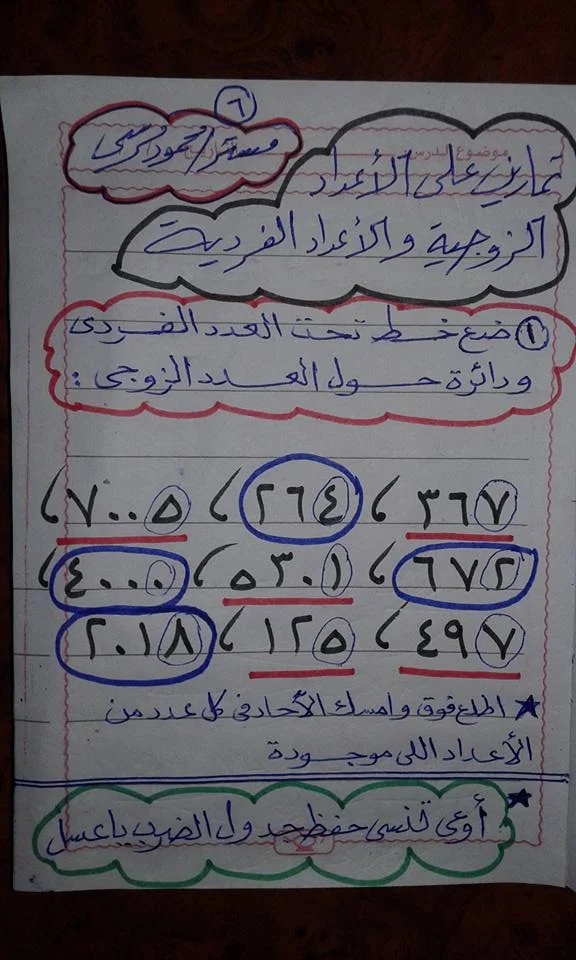 ٦
مستر/محمود مرسى
موضوع الدرس
تمارين على الأعداد
الزوجية والأعداد الفردية
١ ضع خط تحت العدد الفردى
ودائرة حول العدد الزوجى :
٣٦٧ ، ٢٦٤ ، ٧٠٠٥ ،
٦٧٢ ، ٥٣٠١ ، ٤٠٠٠ ،
٤٩٧ ، ١٢٥ ، ٢٠١٨
★ اطلع فوق وامسك الآحاد فى كل عدد من
الأعداد اللى موجودة
★ أوعى تنسى حفظ جدول الضرب يا عسل